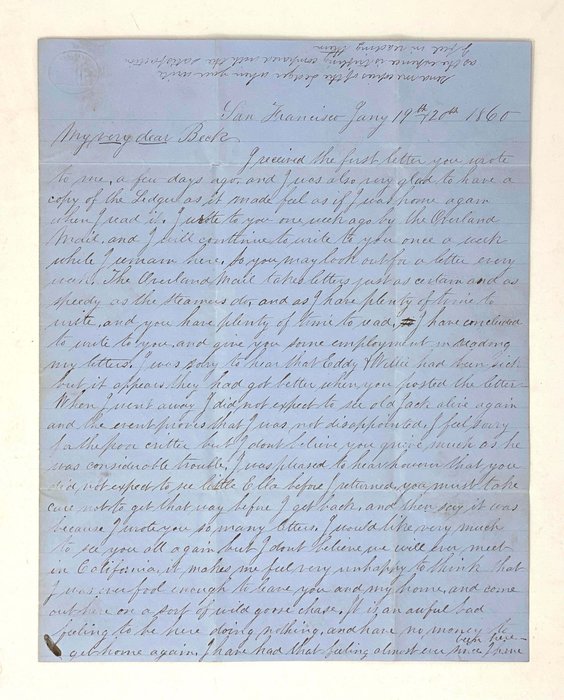 Send me copies of the Ledger when you write
as the expense is trifling compared with the satisfaction
I feel in reading them
San Francisco Jany 19th/20th 1860
My very dear Beck
I received the first letter you wrote
to me, a few days ago, and I was also very glad to have a
copy of the Ledger as it made feel as if I was home again
when I read it. I wrote to you one week ago by the Overland
Mail, and I will continue to write to you once a week
while I remain here, so you may look out for a letter every
week. The Overland Mail takes letters just as certain and as
speedy as the Steamers do, and as I have plenty of time to
write, and you have plenty of time to read, I have concluded
to write to you, and give you some employment in reading
my letters. I was sorry to hear that Eddy & Willie had been sick
but it appears they had got better when you posted the letter
When I went away I did not expect to see old Jack alive again
and the event proves that I was not disappointed. I feel sorry
for the poor critter but I dont believe you grieve much as he
was considerable trouble. I was pleased to hear however that you
did not expect to see little Ella before I returned, you must take
care not to get that way before I get back, and then say it was
because I wrote you so many letters. I would like very much
to see you all again but I dont believe we will ever meet
in California, it makes me feel very unhappy to think that
I was ever fool enough to leave you and my home, and come
out here on a sort of wild goose chase. It is an awful bad
feeling to be here doing nothing, and have no money to
get home again. I have had that feeling almost ever since I have
been here